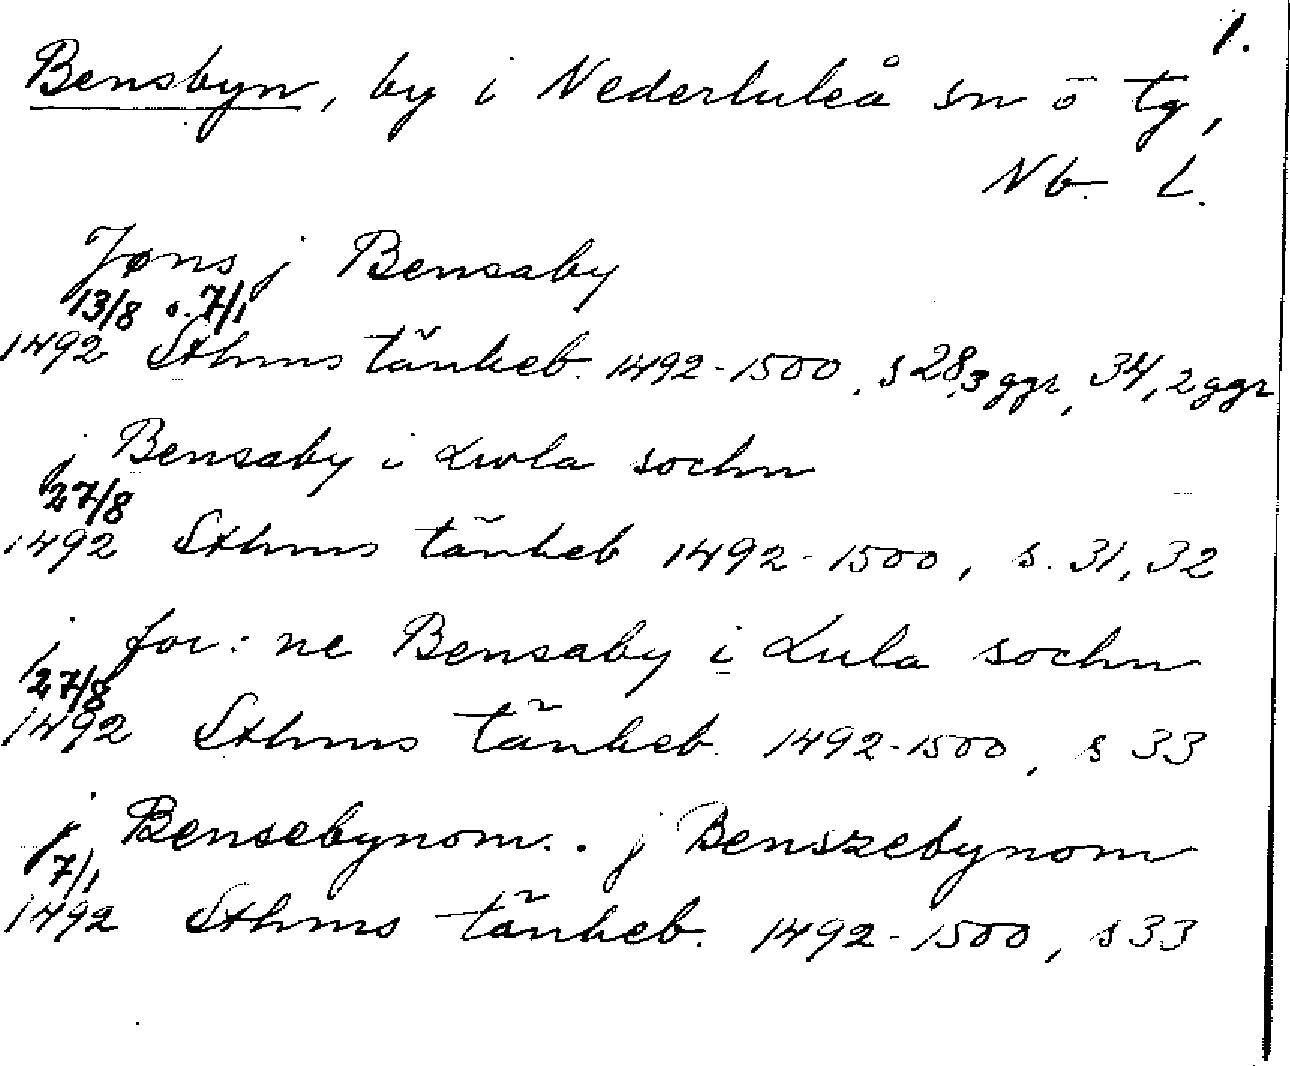 1.
Bensbyn, by i Nederluleå sn o tg,
Nb. L.
Jøns j Bensaby
13/8 o. 7/1
1492 Sthms tänkeb. 1492-1500, s 28, 3 ggr, 34, 2 ggr
j Bensaby i Lwla sochn
27/8
1492 Sthms tänkeb 1492-1500, s. 31, 32
j for: ne Bensaby i Lula sochn
27/8
1492 Sthms tänkeb. 1492-1500, s 33
j Bensebynom.. j Benszebynom
7/1
1492 Sthms tänkeb. 1492-1500, s 33